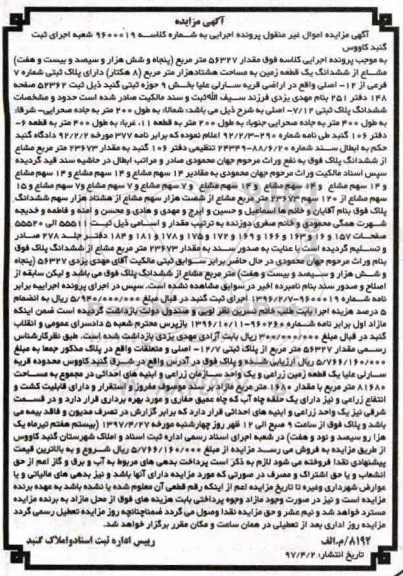 آگهی مزایده
آگهی مزایده اموال غیر منقول پرونده اجرایی به شماره کلاسه ۹۶۰۰۰۱۹ شعبه اجرای ثبت
گنبد کاووس
به موجب پرونده اجرایی کلاسه فوق مقدار ۵۶۳۲۷ متر مربع (پنجاه و شش هزار و سیصد و بیست و هفت)
مشاع از ششدانگ یک قطعه زمین به مساحت هشتادهزار متر مربع (۸ هکتار) دارای پلاک ثبتی شماره ۷
فرعی از ۱۲- اصلی واقع در اراضی قریه سارلی علیا بخش ۹ حوزه ثبتی گنبد ذیل ثبت ۵۲۳۶۲ صفحه
۱۴۸ دفتر ۲۵۱ بنام مهدی یزدی فرزند سیف الله ثبت و سند مالکیت صادر شده است حدود و مشخصات
ششدانگ پلاک ثبتی ۷/۱۲- اصلی به شرح ذیل می باشد: شمالا: به طول ۲۰۰ متر به جاده صحرایی- شرقا:
به طول ۴۰۰ متر به جاده صحرایی جنوبا: به طول ۲۰۰ متر به قطعه ۱۱، غربا: به طول ۴۰۰ متر به قطعه ۶-
دفتر ۱۰۶ گنبد طی نامه شماره ۲۹۰-۹۲/۲/۳ اعلام نموده که برابر نامه ۳۷۷ مورخه ۹۲/۲/۲ دادگاه گنبد
حکم به ابطال سند شماره ۲۴۴۳۹-۸۸/۶/۲۰ تنظیمی دفتر ۱۰۶ گنبد به مقدار ۲۳۶۷۳ متر مربع مشاع
از ششدانگ پلاک فوق به نفع وراث مرحوم جهان محمودی صادر و مراتب ابطال در حاشیه سند قید گردیده
سپس اسناد مالکیت وراث مرحوم جهان محمودی به مقادیر ۱۴ سهم مشاع و ۱۴ سهم مشاع و ۱۴ سهم مشاع
و ۱۴ سهم مشاع و ۱۴ سهم مشاع و ۱۵ سهم مشاع و ۷ سهم مشاع و ۷ سهم مشاع و ۷ سهم مشاع و ۱۵
سهم مشاع از ۱۲۰ سهم ۲۳۶۷۳ متر مربع مشاع از شصت هزار سهم مشاع از هشتاد هزار سهم ششدانگ
پلاک فوق بنام آقایان و خانم ها اسماعیل و حسین و ایرج و مهدی و هادی و محسن و آمنه و فاطمه و خدیجه
شهرت همگی محمودی و خانم صغری دوزنده به ترتیب مقدار و اسامی ذیل ثبت ۵۵۵۱۱ الی ۵۵۵۲۰
صفحات ۱۵۷ و ۱۶۰ و ۱۶۳ و ۱۶۶ و ۱۶۹ و ۱۷۲ و ۱۷۵ و ۱۷۸ و ۱۸۱ و ۱۸۴ دفتر جلد ۲۷۸ صادر
و تسلیم گردیده است با عنایت به صدور سند به مقدار ۲۳۶۷۳ متر مربع مشاع از ششدانگ پلاک فوق
بنام وراث مرحوم جهان محمودی در حال حاضر برابر سوابق ثبتی مالکیت آقای مهدی یزدی ۵۶۳۲۷ (پنجاه
و شش هزار و سیصد و بیست و هفت) متر مربع مشاع از ششدانگ پلاک فوق می باشد و لیکن سابقه از
اصلاح و صدور سند بنام نامبرده اخیر در سوابق مشاهده نشده است. سپس در اجرای پرونده اجراییه برابر
نامه شماره ۹۶۰۰۰۱۹-۱۳۹۶/۲/۷ اجرای ثبت گنبد در قبال مبلغ ۵/۹۲۰/۰۰۰/۰۰۰ ریال به انضمام
۵ درصد هزینه اجرا بابت طلب خانم نسرین نظر لویی و صندوق دولت بازداشت گردیده است ضمن اینکه
مازاد اول برابر نامه شماره ۹۶۰۲۶۰-۱۳۹۶/۱۰/۱۱ بازپرس محترم شعبه ۵ دادسرای عمومی و انقلاب
گنبد در قبال مبلغ ۳۰۰/۰۰۰/۰۰۰ ریال بابت آزادی مهدی یزدی بازداشت شده است. طبق نظر کارشناس
رسمی مقدار ۵۶۳۲۷ متر مربع از پلاک ثبتی ۱۲/۷- اصلی و متعلقات واقع در پلاک مذکور جمعا به مبلغ
۵/۷۶۶/۱۶۰/۰۰۰ ریال ارزیابی شده و پلاک فوق در آدرس واقع در شرق گنبد کاووس محدوده قریه
سارلی علیا یک قطعه زمین زراعی و یک واحد سازمان زراعی و ابنیه های احداثی در مجموع به مساحت
۸۱۶۸۰ متر مربع با مقدار ۱۶۸۰ متر مربع مازاد بر سند موصوف مفروز از استقرار و دارای قابلیت کشت و
انتفاع زراعی و نیز دارای یک حلقه چاه آب که چاه عمیق حفاری و مورد بهره برداری قرار دارد و در قسمت
شرقی نیز یک واحد زراعی و ابنیه های احداثی قرار دارد که برابر گزارش در تصرف مدیون و فاقد بیمه می
باشد و پلاک فوق از ساعت ۹ صبح الی ۱۲ ظهر روز چهارشنبه مورخه ۱۳۹۷/۴/۲۷ (بیستم هفتم تیرماه یک
هزار و سیصد و نود و هفت) در شعبه اجرای اسناد رسمی اداره ثبت اسناد و املاک شهرستان گنبد کاووس
از طریق مزایده به فروش می رسد مزایده از مبلغ ۵/۷۶۶/۱۶۰/۰۰۰ ریال شروع و به بالاترین قیمت
پیشنهادی نقدا فروخته می شود لازم به ذکر است پرداخت بدهی های مربوط به آب و برق و گاز اعم از حق
انشعاب و یا حق اشتراک و مصرف در صورتی که مورد مزایده دارای آنها باشد و نیز بدهی های مالیاتی و یا
عوارض شهرداری وغیره تا تاریخ مزایده اعم از اینکه رقم قطعی آن معلوم شده یا نشده باشد به عهده برنده
مزایده است و نیز در صورت وجود مازاد وجوه پرداختی بابت هزینه های فوق از محل مازاد به برنده مزایده
مسترد خواهد شد و نیم عشر و حق مزایده نقدا وصول می گردد ضمنا چنانچه روز مزایده تعطیل رسمی گردد
مزایده روز اداری بعد از تعطیلی در همان ساعت و مکان مقرر برگزار خواهد شد.
۸۱۹۲/م.الف
رییس اداره ثبت اسناد و املاک گنبد
تاریخ انتشار: ۹۷/۴/۲